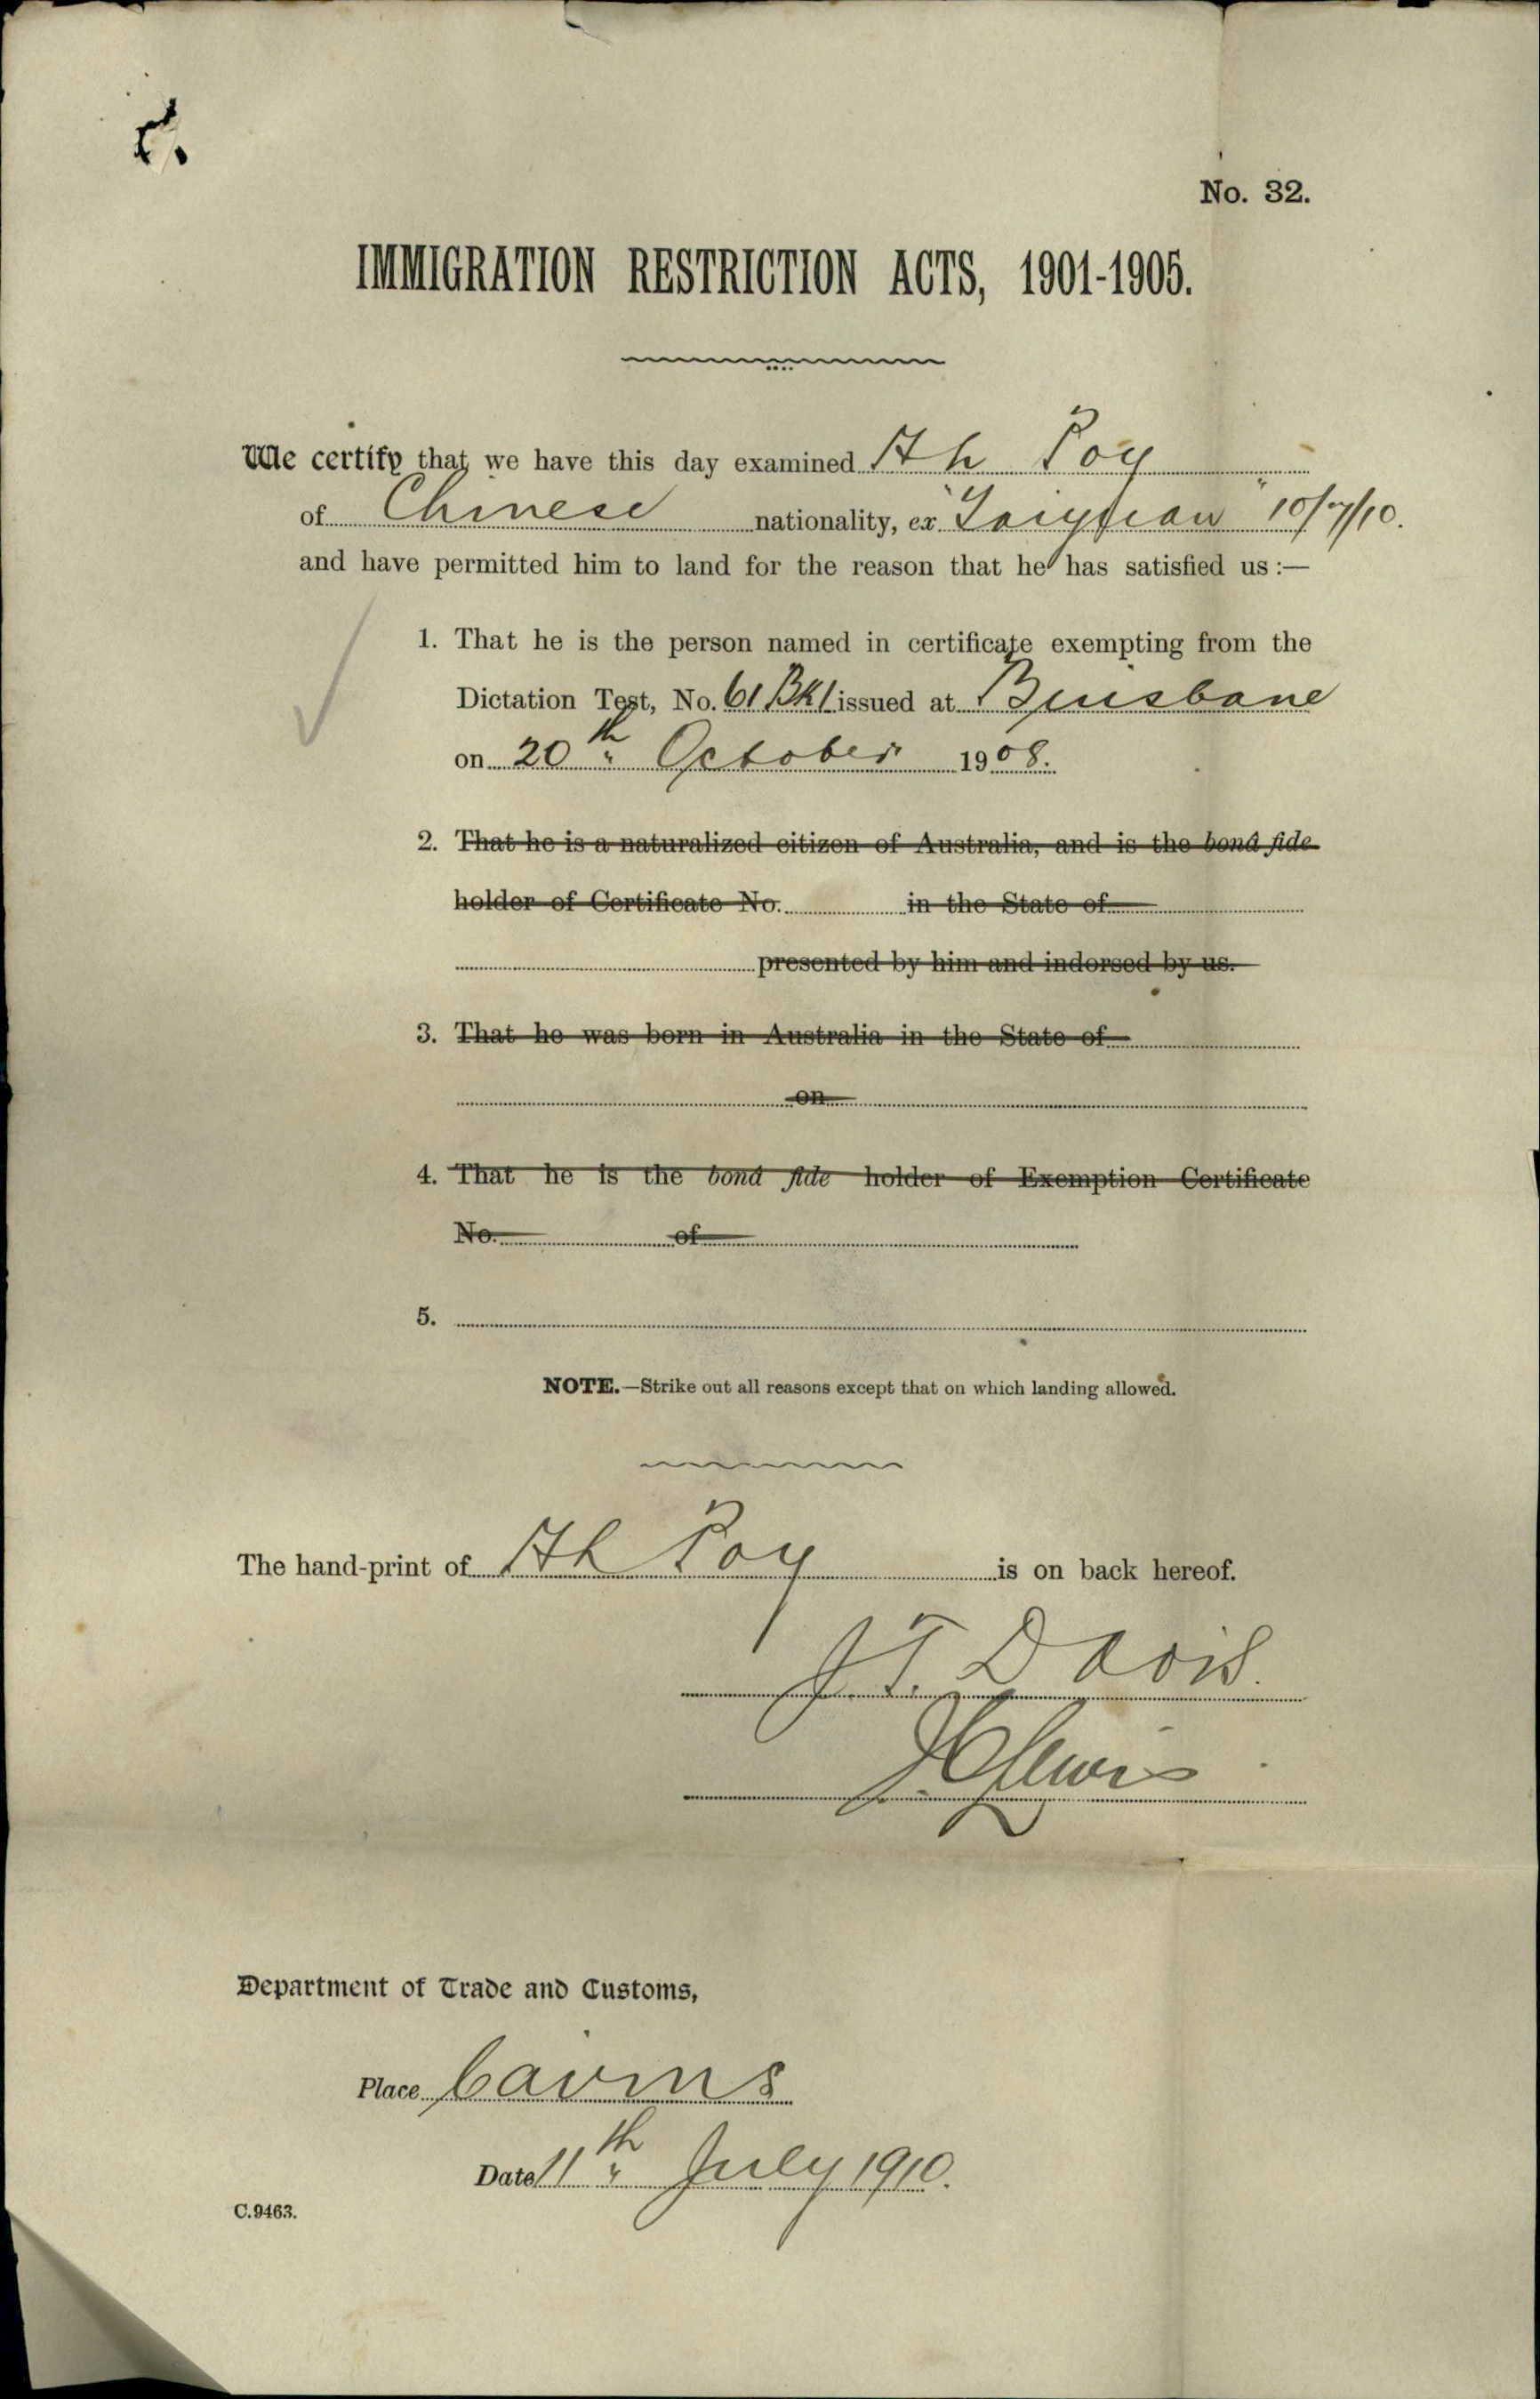 No. 32.
IMMIGRATION RESTRICTION ACTS, 1901-1905.
We certify that we have this day examined Ah Poy
of Chinese nationality, ex "Taiyuan" 10/7/10.
and have permitted him to land for the reason that he has satisfied us:—
1. That he is the person named in certificate exempting from the
Dictation Test, No. 61 Bk 1 issued at Brisbane
on 20th October 1908.
2. That he is a naturalized citizen of Australia, and is the bonâ fide
holder of Certificate No. in the State of
presented by him and indorsed by us.
3. That he was born in Australia in the State of
on
4. That he is the bonâ fide holder of Exemption Certificate
No. of
5.
NOTE.—Strike out all reasons except that on which landing allowed.
The hand-print of Ah Poy is on back hereof.
J. T. Davis.
Lewis
Department of Trade and Customs,
Place Cairns
Date 11th July 1910.
C.9463.